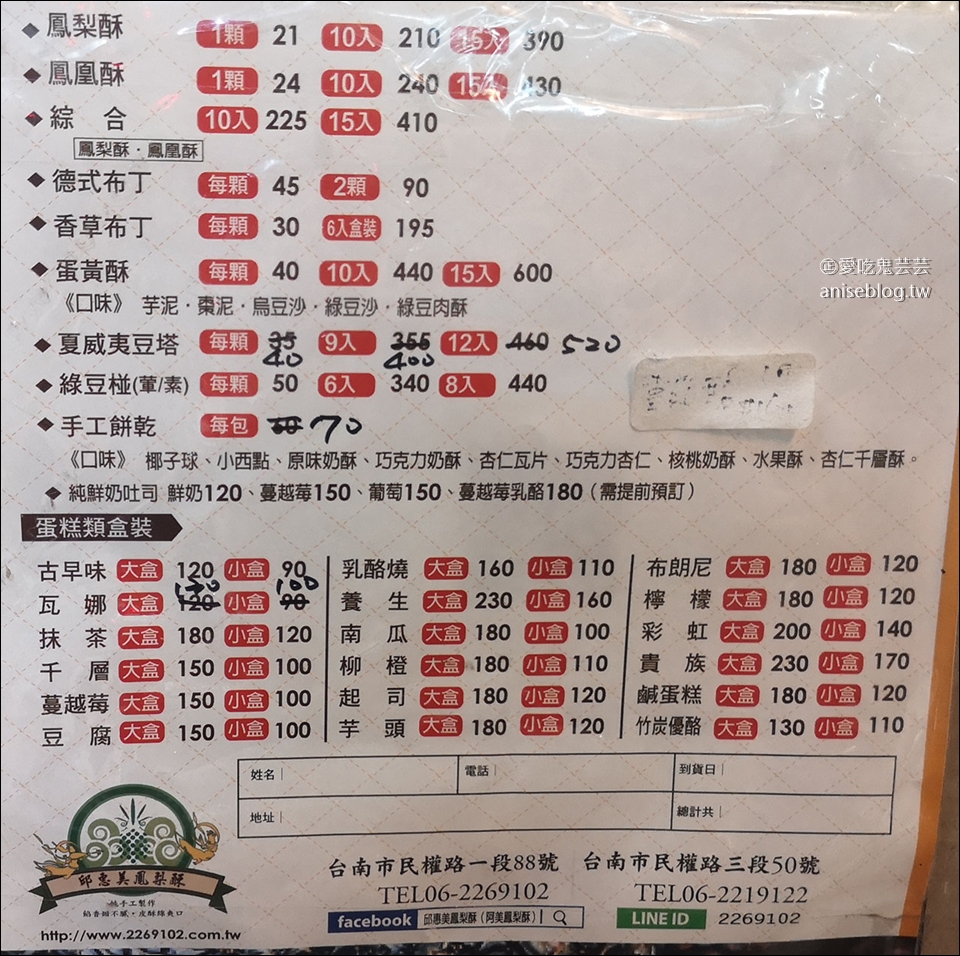 ◆ 鳳梨酥 1顆 21 10入 210 15入 390
◆ 鳳凰酥 1顆 24 10入 240 430
◆ 綜合 10入 225 15入 410
鳳梨酥・鳳凰酥
◆ 德式布丁 每顆 45 2顆 90
◆ 香草布丁 每顆 30 6入盒裝 195
◆ 蛋黃酥 每顆 40 10入 440 15入 600
《口味》 芋泥・棗泥・烏豆沙・綠豆沙・綠豆肉酥
◆ 夏威夷豆塔 每顆 35 40 9入 355 400 12入 460 520
◆ 綠豆椪(葷/素) 每顆 50 6入 340 8入 440
◆ 手工餅乾 每包 70
《口味》 椰子球、小西點、原味奶酥、巧克力奶酥、杏仁瓦片、巧克力杏仁、核桃奶酥、水果酥、杏仁千層酥。
◆ 純鮮奶吐司 鮮奶120、蔓越莓150、葡萄150、蔓越莓乳酪180（需提前預訂）
蛋糕類盒裝
古早味 大盒 120 小盒 90
瓦娜 大盒 120 130 小盒 90 100
抹茶 大盒 180 小盒 120
千層 大盒 150 小盒 100
蔓越莓 大盒 150 小盒 100
豆腐 大盒 150 小盒 100
乳酪燒 大盒 160 小盒 110
養生 大盒 230 小盒 160
南瓜 大盒 180 小盒 100
柳橙 大盒 180 小盒 110
起司 大盒 180 小盒 120
芋頭 大盒 180 小盒 120
布朗尼 大盒 180 小盒 120
檸檬 大盒 180 小盒 120
彩虹 大盒 200 小盒 140
貴族 大盒 230 小盒 170
鹹蛋糕 大盒 180 小盒 120
竹炭優酪 大盒 130 小盒 110
姓名 電話 到貨日
地址 總計共
邱惠美鳳梨酥
純手工製作
餡香甜不膩・皮酥綿爽口
http://www.2269102.com.tw
台南市民權路一段88號
TEL06-2269102
facebook 邱惠美鳳梨酥（阿美鳳梨酥）
台南市民權路三段50號
TEL06-2219122
LINE ID 2269102
㊣愛吃鬼芸芸
aniseblog.tw